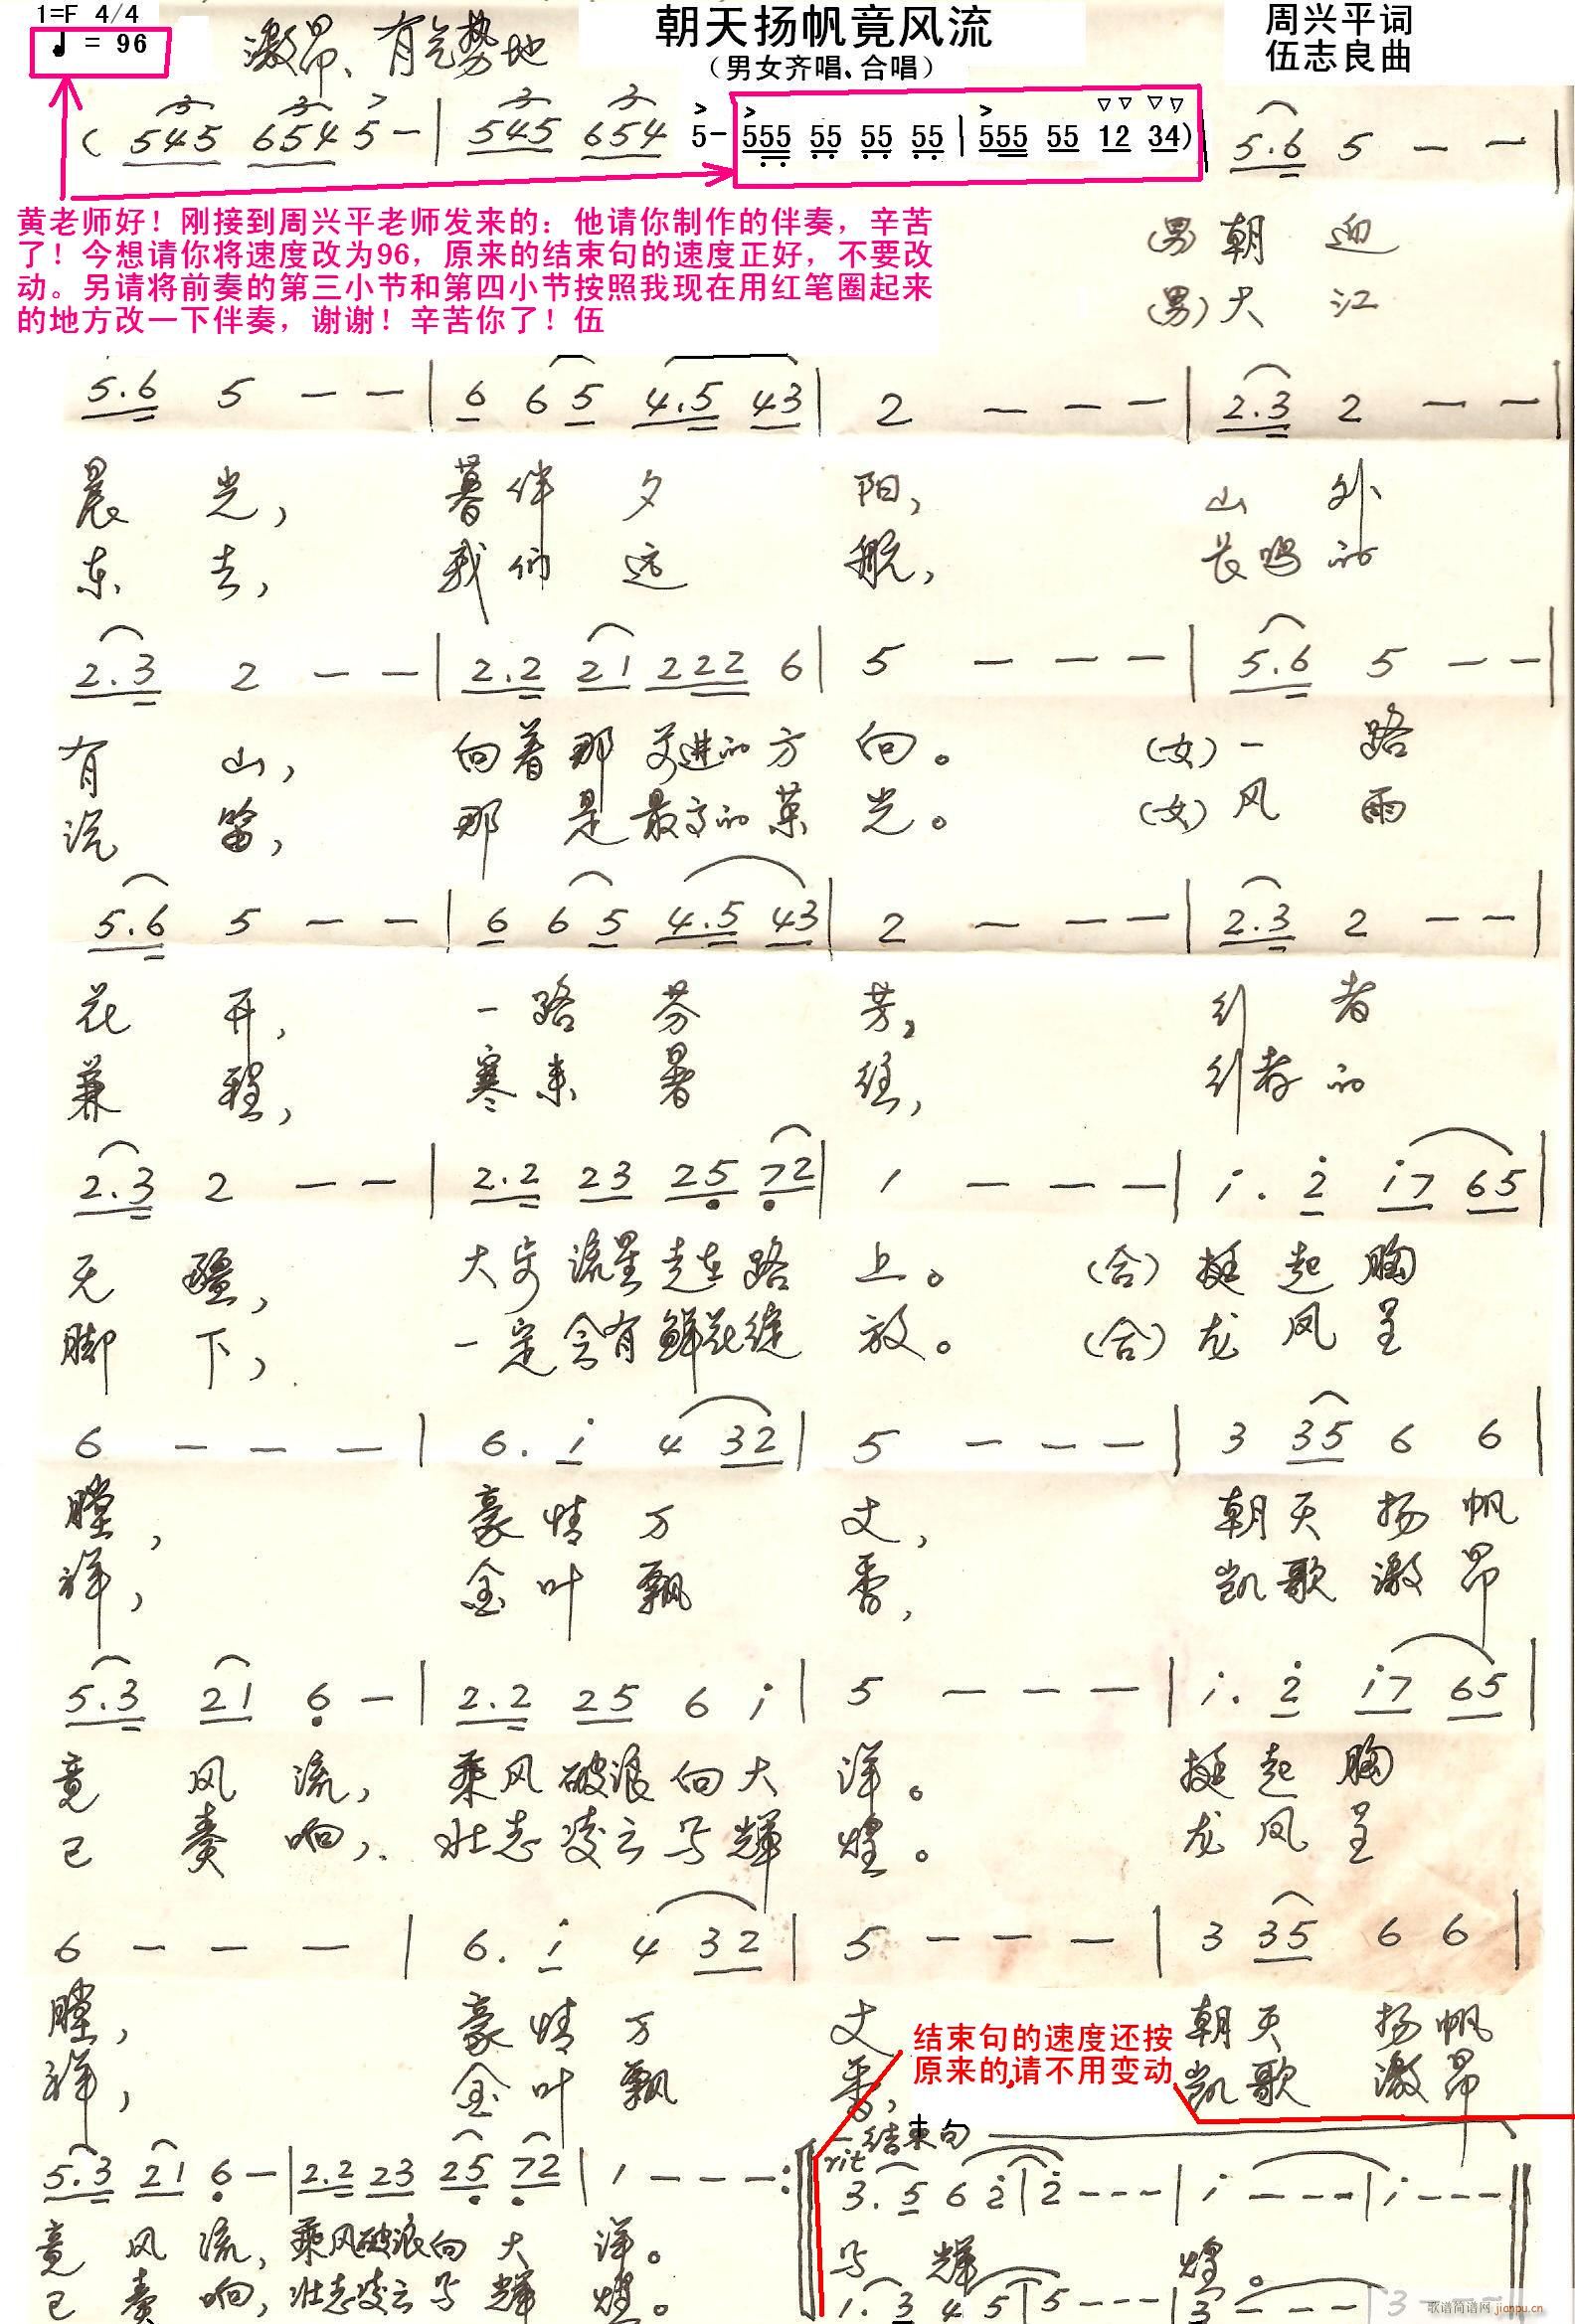 1=F 4/4
♩ = 96
激昂、有气势地
朝天扬帆竟风流
(男女齐唱、合唱)
周兴平词
伍志良曲
( 545 654 5 - | 545 654 5- 555 55 55 55 | 555 55 12 34) 5.6 5 - - |
黄老师好!刚接到周兴平老师发来的:他请你制作的伴奏,辛苦
了!今想请你将速度改为96,原来的结束句的速度正好,不要改
动。另请将前奏的第三小节和第四小节按照我现在用红笔圈起来
的地方改一下伴奏,谢谢!辛苦你了!伍
(男) 朝 迎
(男) 大 江
5.6 5 - - | 6 6 5 4.5 43 | 2 - - - | 2.3 2 - - |
晨 光, 暮伴 夕 阳, 山 外
东 去, 我们 远 航, 长鸣 的
2.3 2 - - | 2.2 21 222 6 | 5 - - - | 5.6 5 - - |
有 山, 向着那 前进的方 向。 (女) 一 路
汽 笛, 那 是最高的 光。 (女) 风 雨
5.6 5 - - | 6 6 5 4.5 43 | 2 - - - | 2.3 2 - - |
花 开, 一 路 芬 芳, 行 者
兼 程, 寒来 暑 往, 行者 的
2.3 2 - - | 2.2 23 25 72 | 1 - - - | i. 2 i7 65 |
无 疆, 大步流星走在路 上。 (合) 挺 起 胸
脚 下, 一定会有鲜花绽 放。 (合) 龙 凤 呈
6 - - - | 6. i 4 32 | 5 - - - | 3 35 6 6 |
膛, 豪 情 万 丈, 朝天 扬 帆
祥, 金 叶 飘 香, 凯歌 激 昂
5.3 21 6 - | 2.2 25 6 i | 5 - - - | i. 2 i7 65 |
竟 风 流, 乘风破浪向大 洋。 挺 起 胸
已 奏 响, 壮志凌云写辉 煌。 龙 凤 呈
6 - - - | 6. i 4 32 | 5 - - - | 3 35 6 6 |
膛, 豪 情 万 丈 朝天 扬帆
祥, 金 叶 飘 香, 凯歌 激 昂
结束句的速度还按
原来的,请不用变动
结束句
rit
5.3 21 6 - | 2.2 23 25 72 | 1 - - - :‖ 3. 5 6 2 | 2 - - - | i - - - | i - - - ‖
竟 风 流, 乘风破浪向 大 洋。 写 辉 煌。
已 奏 响, 壮志凌云写 辉 煌。 1. 3 4 5 | 5 - - - | 3 - - - | 3 - - -
歌谱简谱网
jianpu.cn